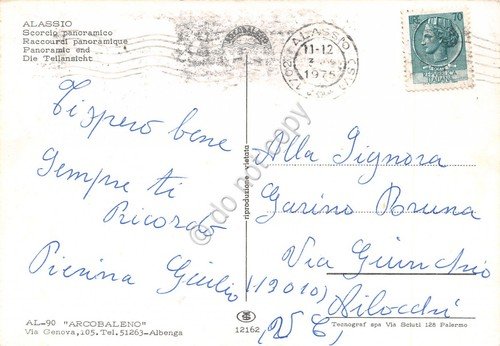 ALASSIO
Scorcio panoramico
Raccourci panoramique
Panoramic end
Die Teilansicht
ARCOBALENO
ALASSIO
11-12
1975
70
ITALIANA
Ti spero bene
Sempre ti
Ricordo
Pierina Giulio
riproduzione vietata
Alla Signora
Garino Bruna
Via Giunchio
(13010)
Vilocchi
(VC)
AL-90 "ARCOBALENO"
Via Genova, 105. Tel. 51263-Albenga
12162
Tecnograf spa Via Sciuti 128 Palermo
do not copy